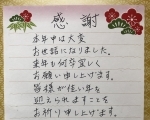 感謝
本年中は大変
お世話になりました。
来年も何卒宜しく
お願い申し上げます。
皆様が佳い年を
迎えられますことを
お祈り申し上げます。